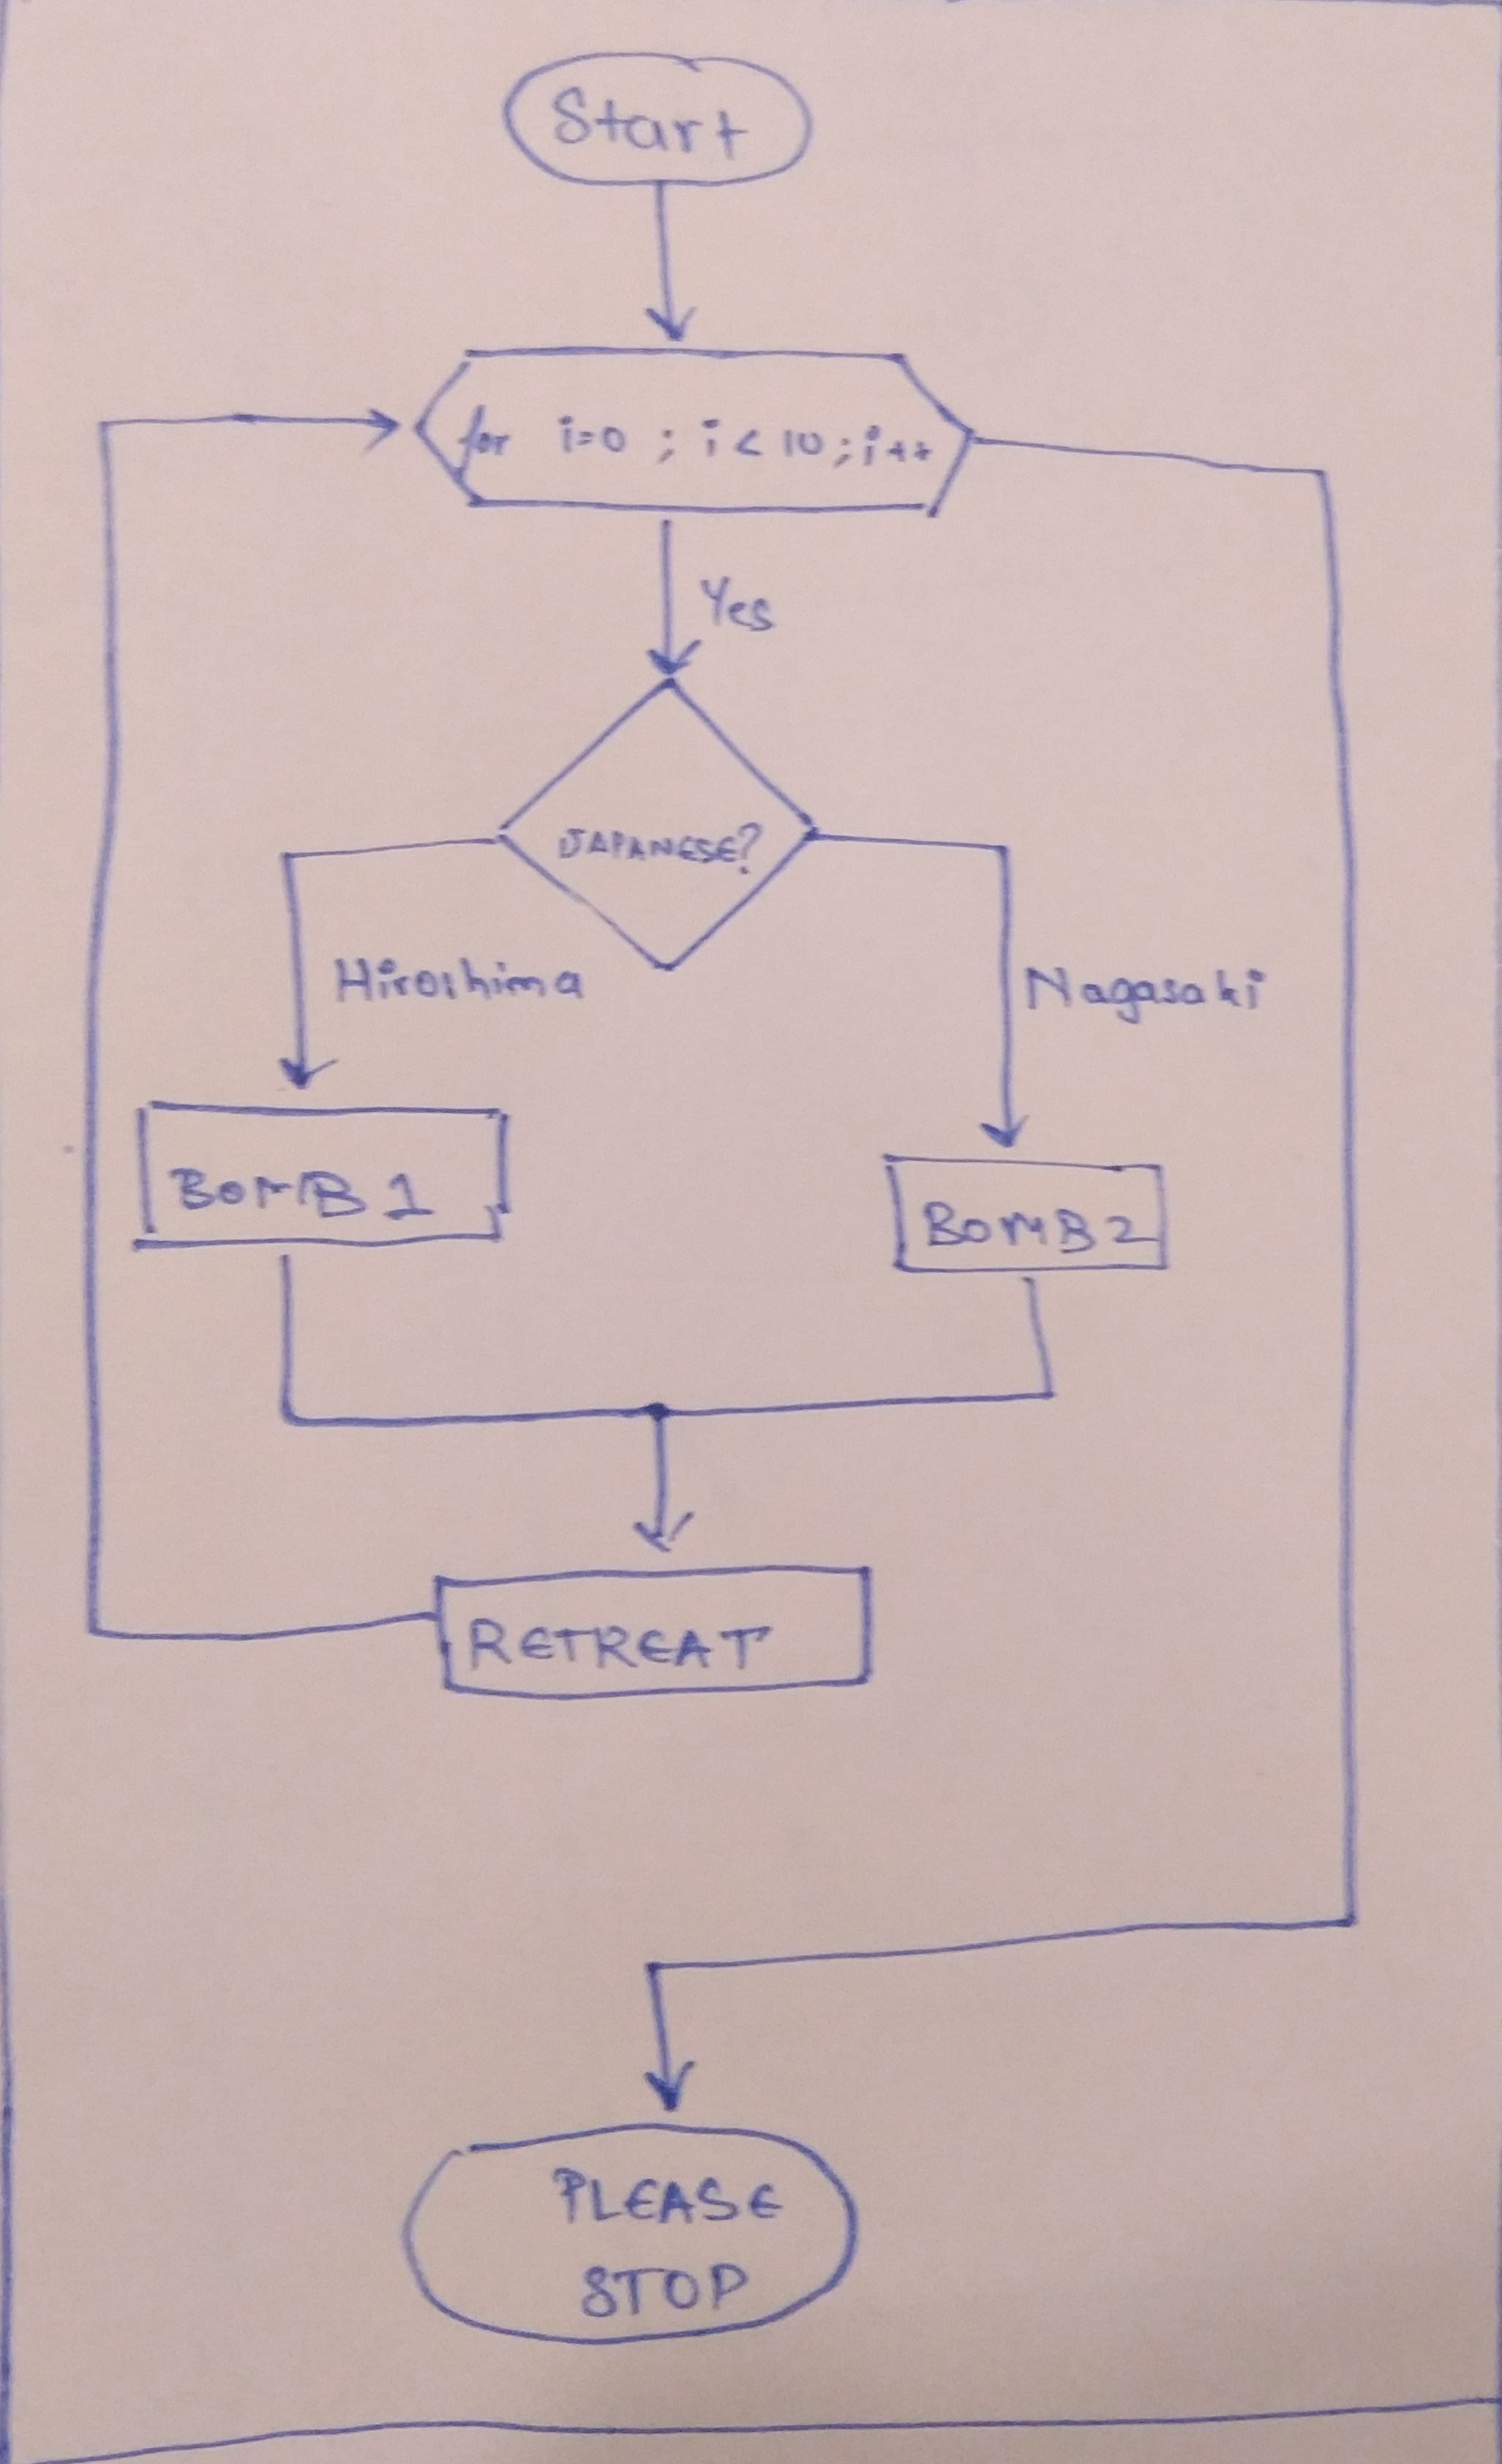 Start
for i=0 ; i < 10 ; i++
Yes
JAPANESE?
Hiroshima
Nagasaki
BOMB 1
BOMB 2
RETREAT
PLEASE
STOP